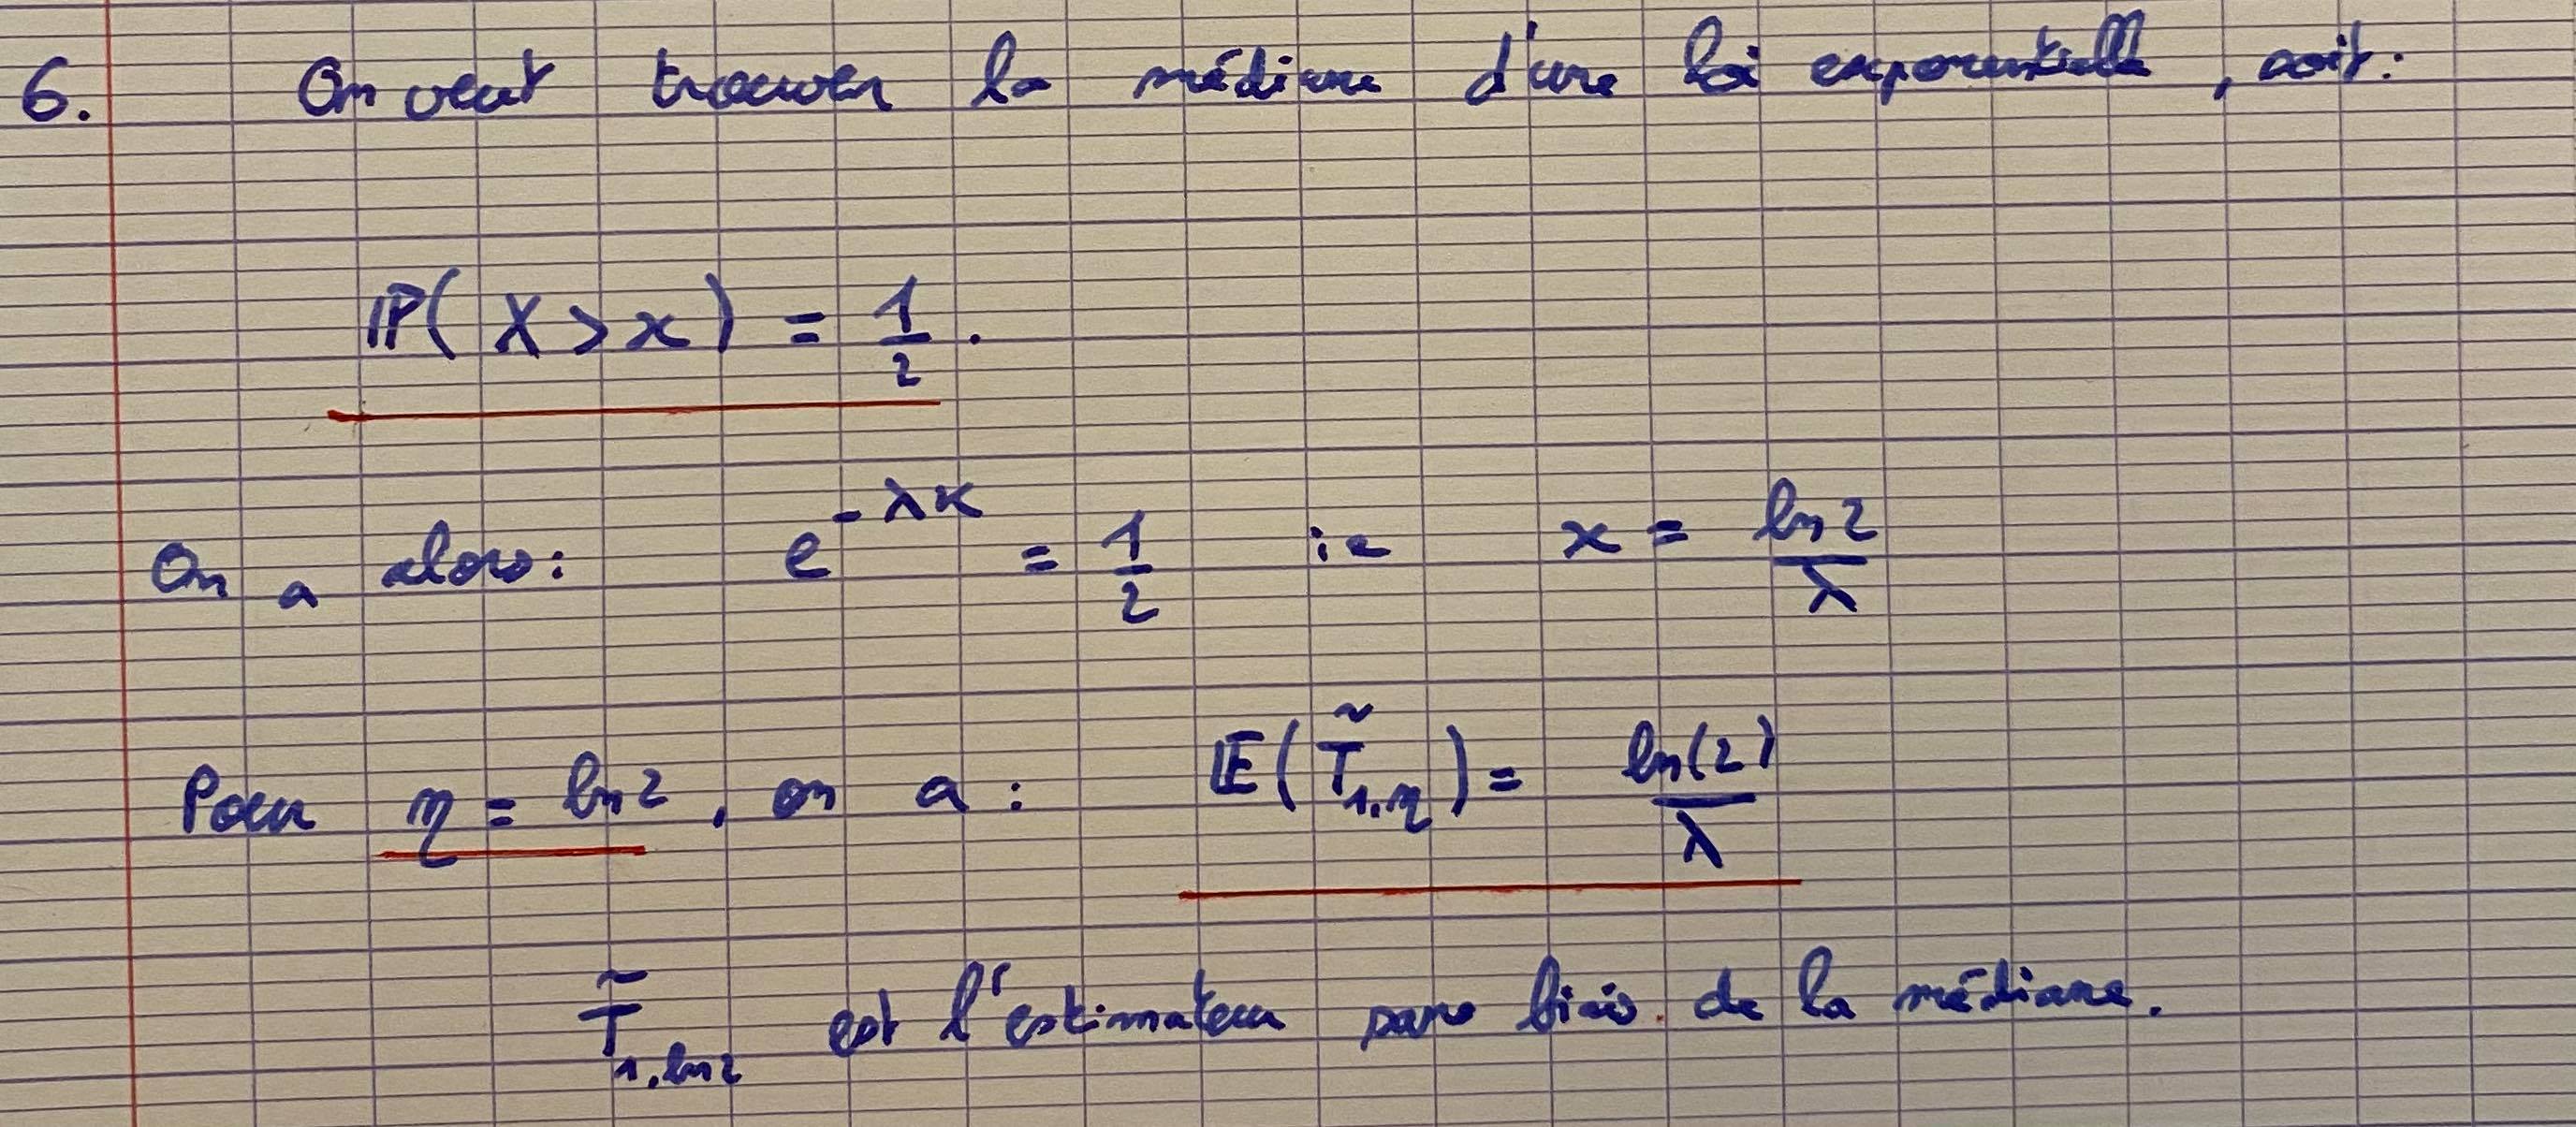 6. On veut trouver la médiane d'une loi exponentielle, soit:
ℙ(X > x) = 1/2.
On a alors: e^{-λx} = 1/2 ie x = ln 2/λ
Pour η = ln 2, on a: 𝔼(T̃_{1,η}) = ln(2)/λ
T̃_{1,ln 2} est l'estimateur sans biais de la médiane.